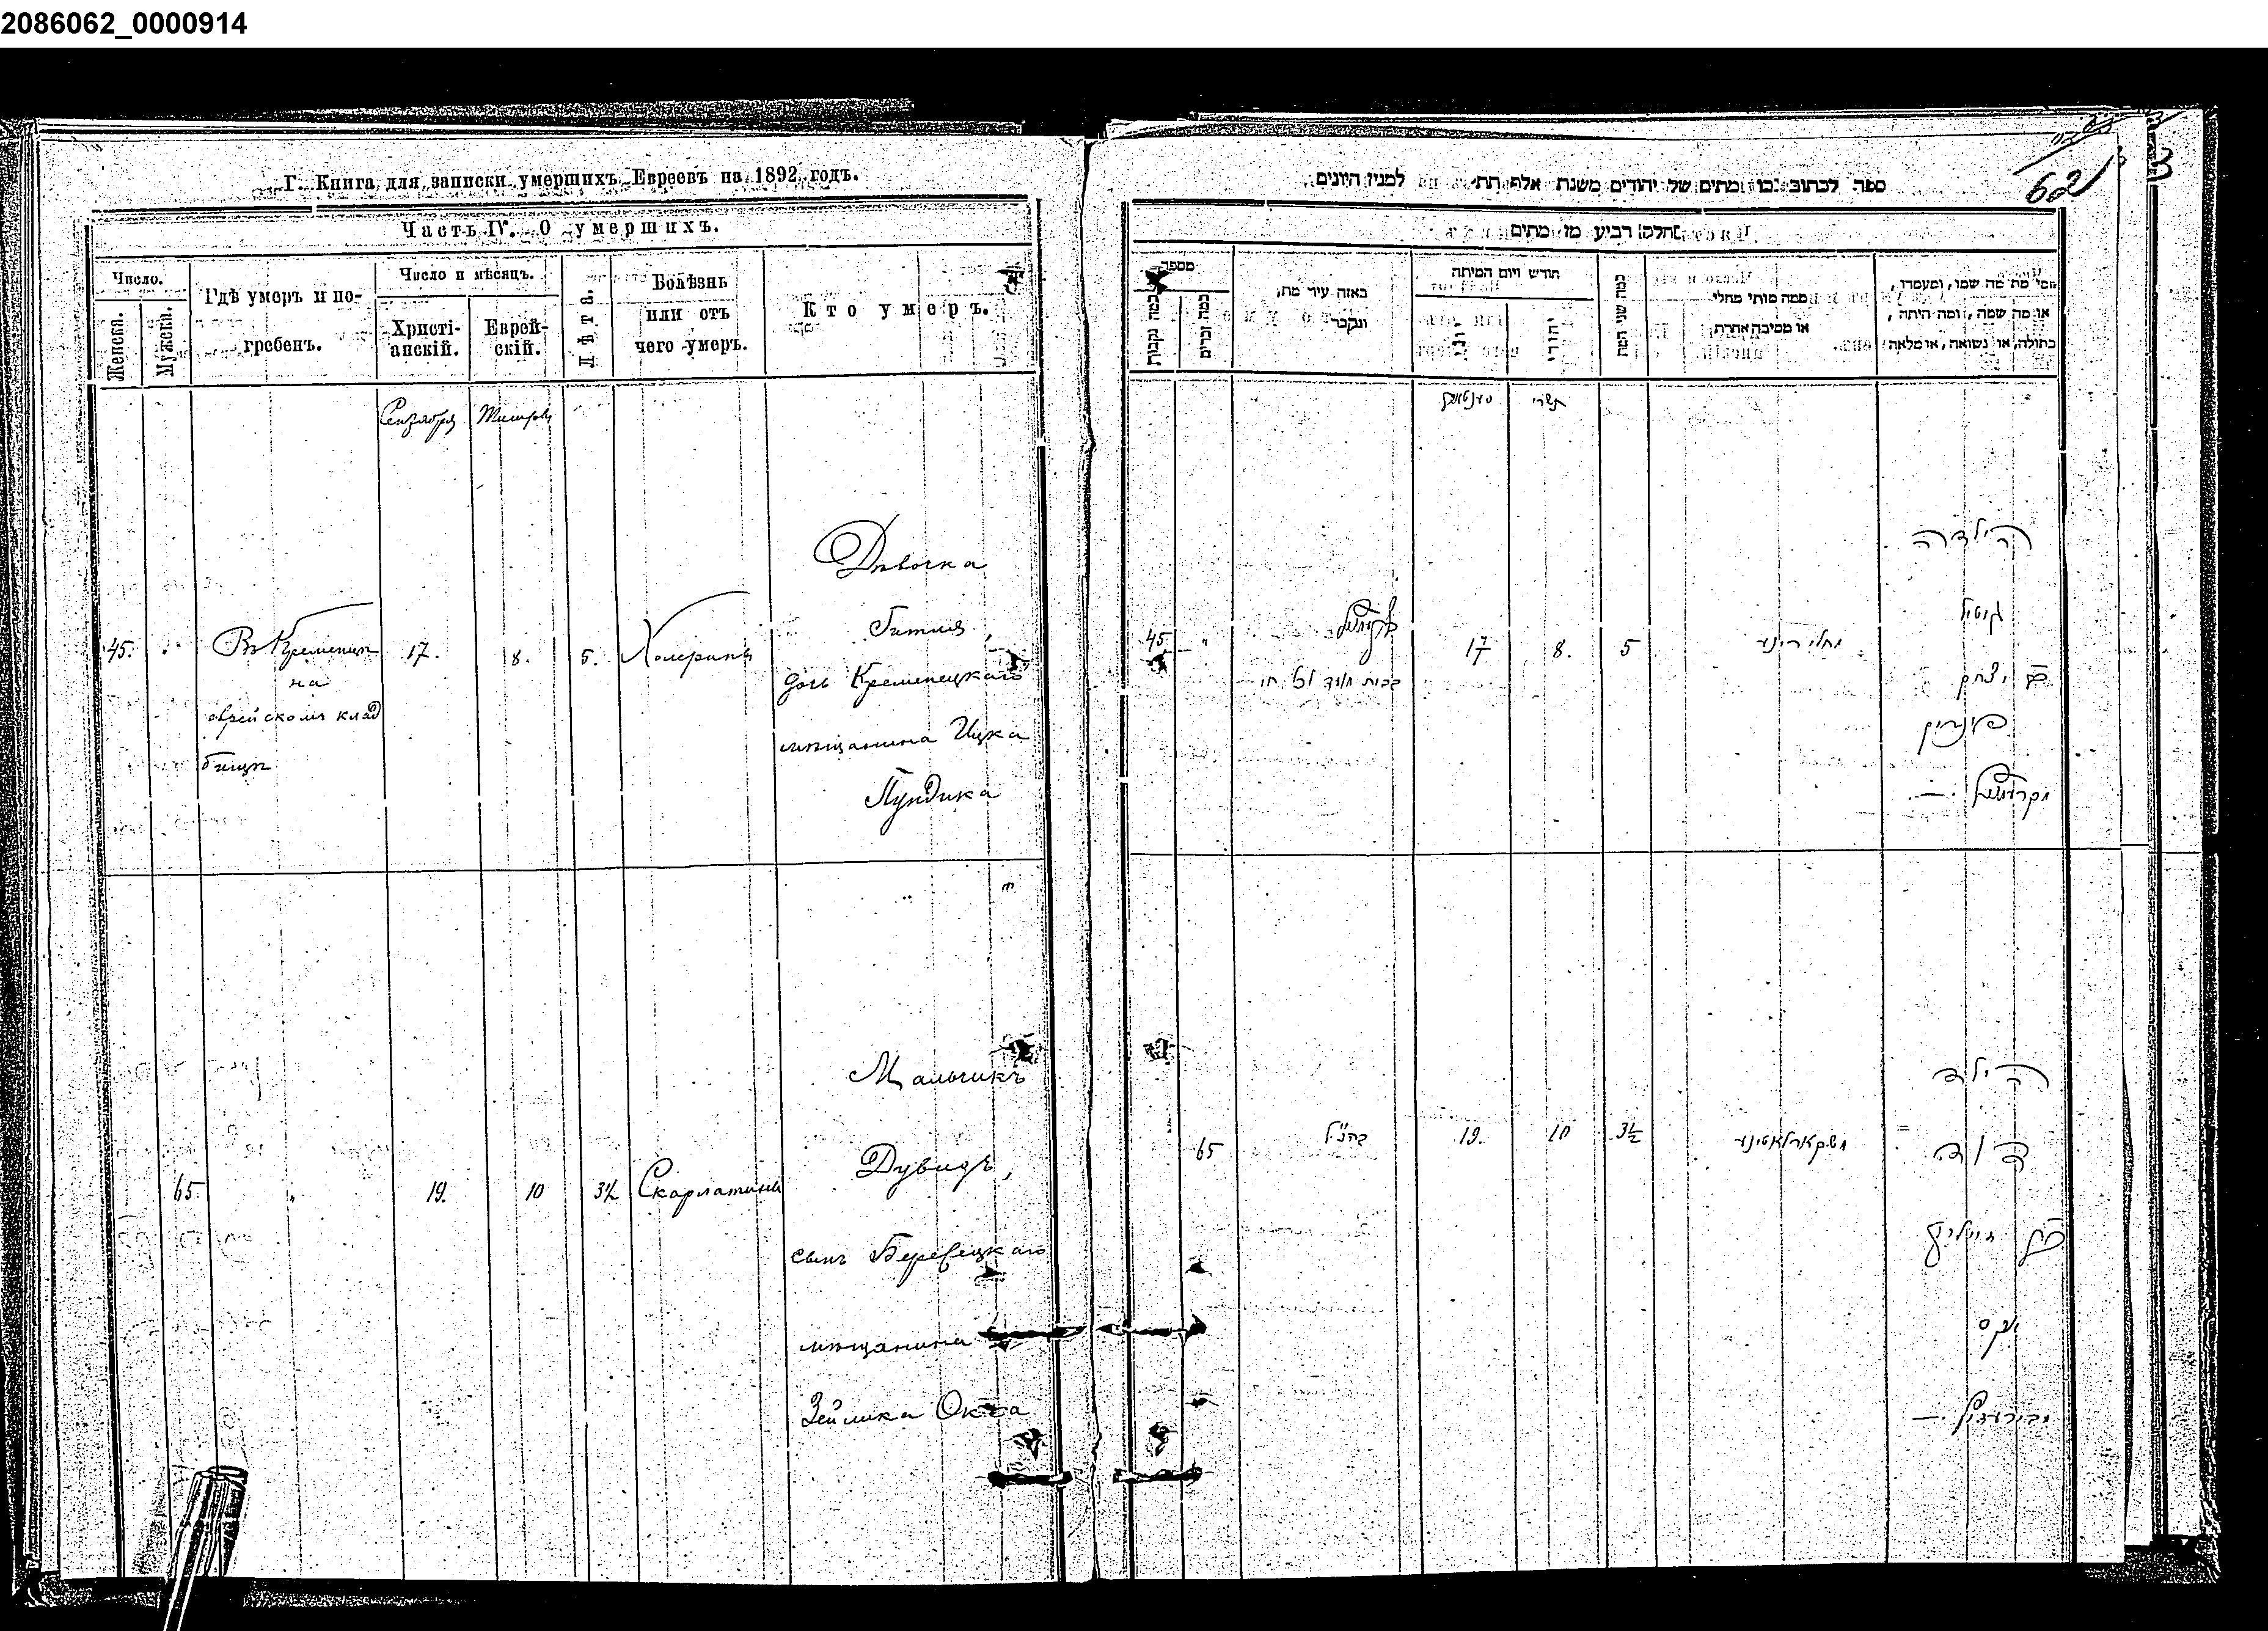 2086062_0000914
Г. Книга для записки умершихъ Евреевъ на 1892 годъ.
Часть IV. О умершихъ.
Число.
Женска.
Мужеска.
Гдѣ умеръ и по-
гребенъ.
Число и мѣсяцъ.
Христі-
анскій.
Еврей-
скій.
Лѣта.
Болѣзнь
или отъ
чего умеръ.
Кто умеръ.
Сентября
Тишри
45.
Въ Кременцѣ
на
еврейскомъ клад
бищѣ
17.
8.
5.
Холерина
Дѣвочка
Гитля,
дочь Кременецкаго
мѣщанина Ицка
Пундика
65
"
19.
10
3½
Скарлатина
Мальчикъ
Дувидъ,
сынъ Березецкаго
мѣщанина
Зейлика Окса
62
ספר לכתוב בו מתים של יהודים משנת אלף תת למנין היונים
חלק רביע מז מתים
מספר
כמה נקבות
כמה זכרים
באזה עיר מת,
ונקבר
חודש ויום המיתה
יוני
יהודי
כמה שני המת
ממה מותו מחלי
או מסיבה אחרת
מי מת מה שמו, ומעמדו,
או מה שמה, ומה היתה,
בתולה, או נשואה, או מלאה
תשרי
45
"
17
8.
5
הילדה
גיטיל
בת יצחק
65
בהנ"ל
19.
10
3½
משקארלאטינע
הילד
דוד
בן
אקס